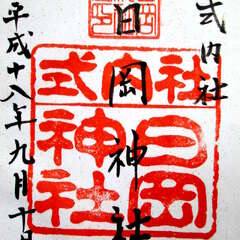 式内社
日岡神社
平成十八年九月十日
式内社
日岡
神社